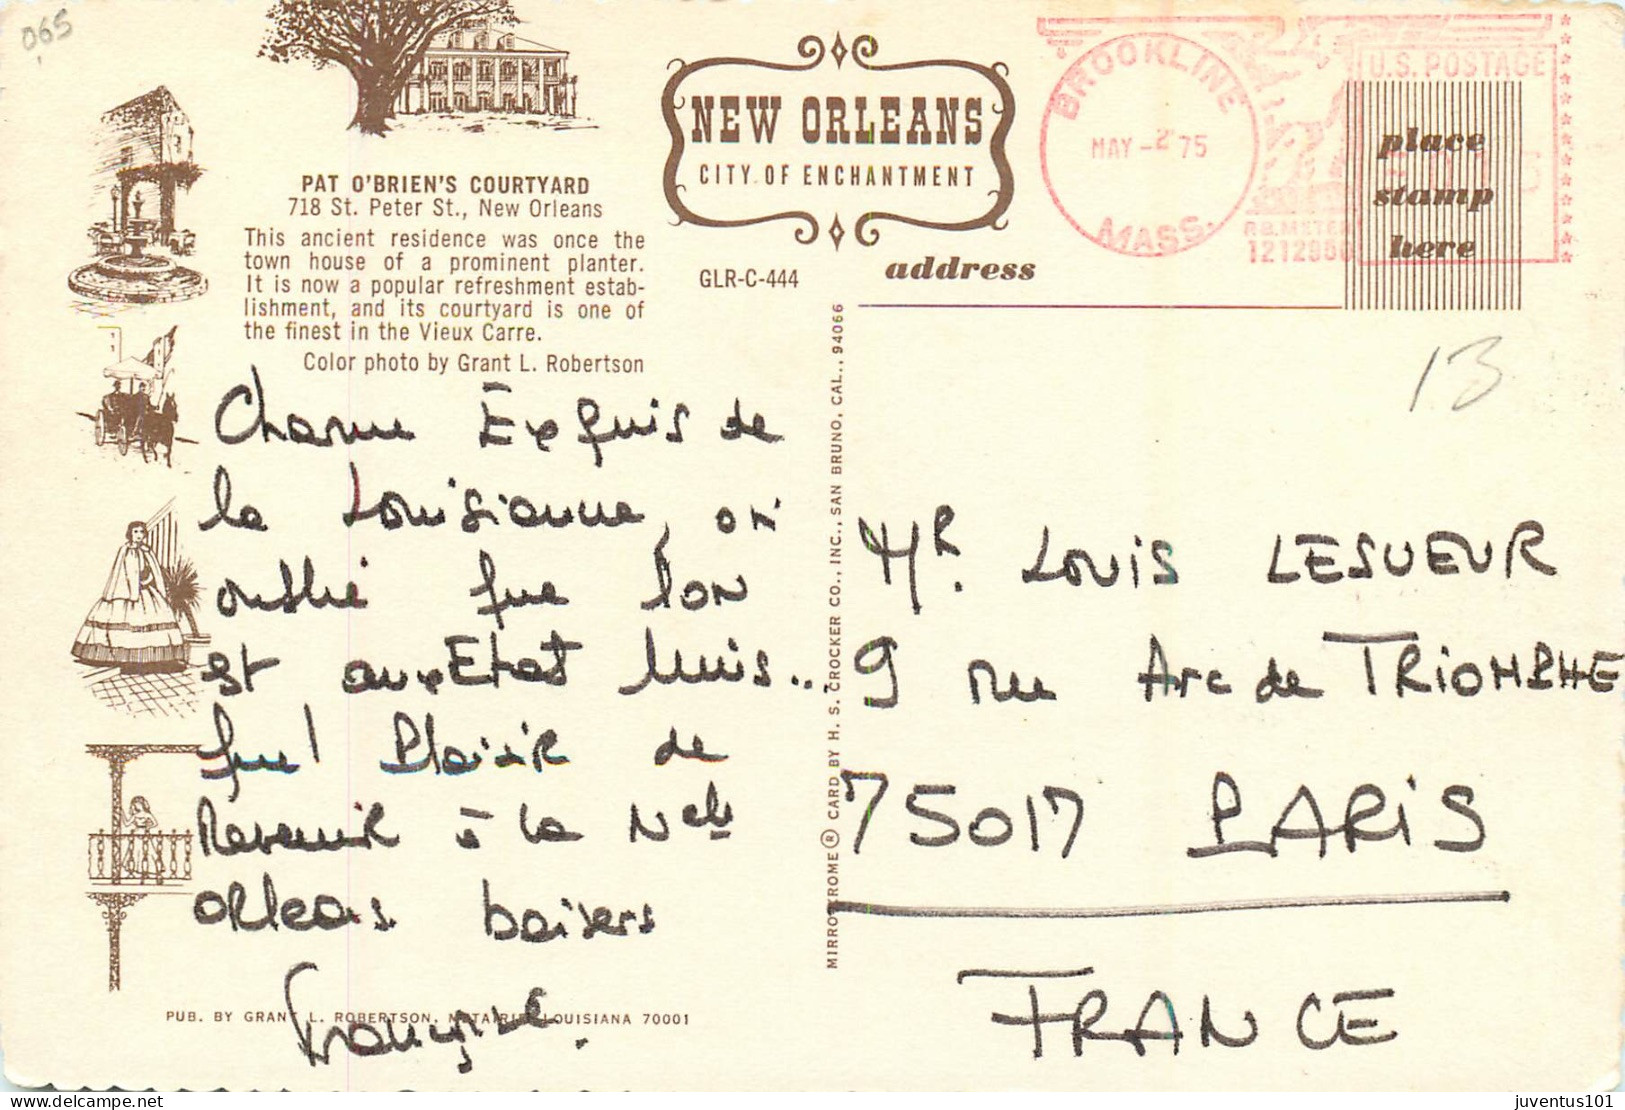 065
PAT O'BRIEN'S COURTYARD
718 St. Peter St., New Orleans
This ancient residence was once the
town house of a prominent planter.
It is now a popular refreshment estab-
lishment, and its courtyard is one of
the finest in the Vieux Carre.
Color photo by Grant L. Robertson
NEW ORLEANS
CITY OF ENCHANTMENT
GLR-C-444
address
BROOKLINE
MAY -2 75
MASS.
U.S. POSTAGE
P.B. METER
place
stamp
here
13
Charme Exquis de
la Louisianne, on
oublie que l'on
est aux Etat Unis..
que! Plaisir de
Revenir à la Nelle
Orleas baisers
Françoise.
MIRRO-KROME ® CARD BY H. S. CROCKER CO., INC., SAN BRUNO, CAL., 94066
Mr. LOUIS LESUEUR
9 rue Arc de TRIOMPHE
75017 PARIS
FRANCE
PUB. BY GRANT L. ROBERTSON, METAIRIE, LOUISIANA 70001
juventus101